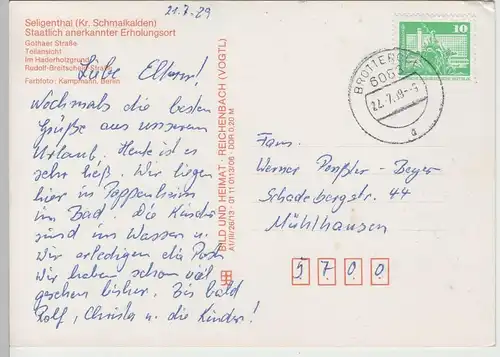 21.7.89
Seligenthal (Kr. Schmalkalden)
Staatlich anerkannter Erholungsort
Gothaer Straße
Teilansicht
Im Haderholzgrund
Rudolf-Breitscheid-Straße
Farbfoto: Kampmann, Berlin
Liebe Eltern!
Nochmals die besten
Grüße aus unserem
Urlaub. Heute ist es
sehr heiß. Wir liegen
hier in Pappenheim
im Bad. Die Kinder
sind im Wasser u.
wir erledigen die Post
Wir haben schon viel
gesehen bisher. Bis bald
Rolf, Christa u. die Kinder!
BILD UND HEIMAT · REICHENBACH (VOGTL)
A1/III/26/13 · 01 11 0513/06 · DDR 0,20 M
10
22.7.89
a
Fam.
Werner
Beyer
Schadebergstr. 44
Mühlhausen
5 7 0 0